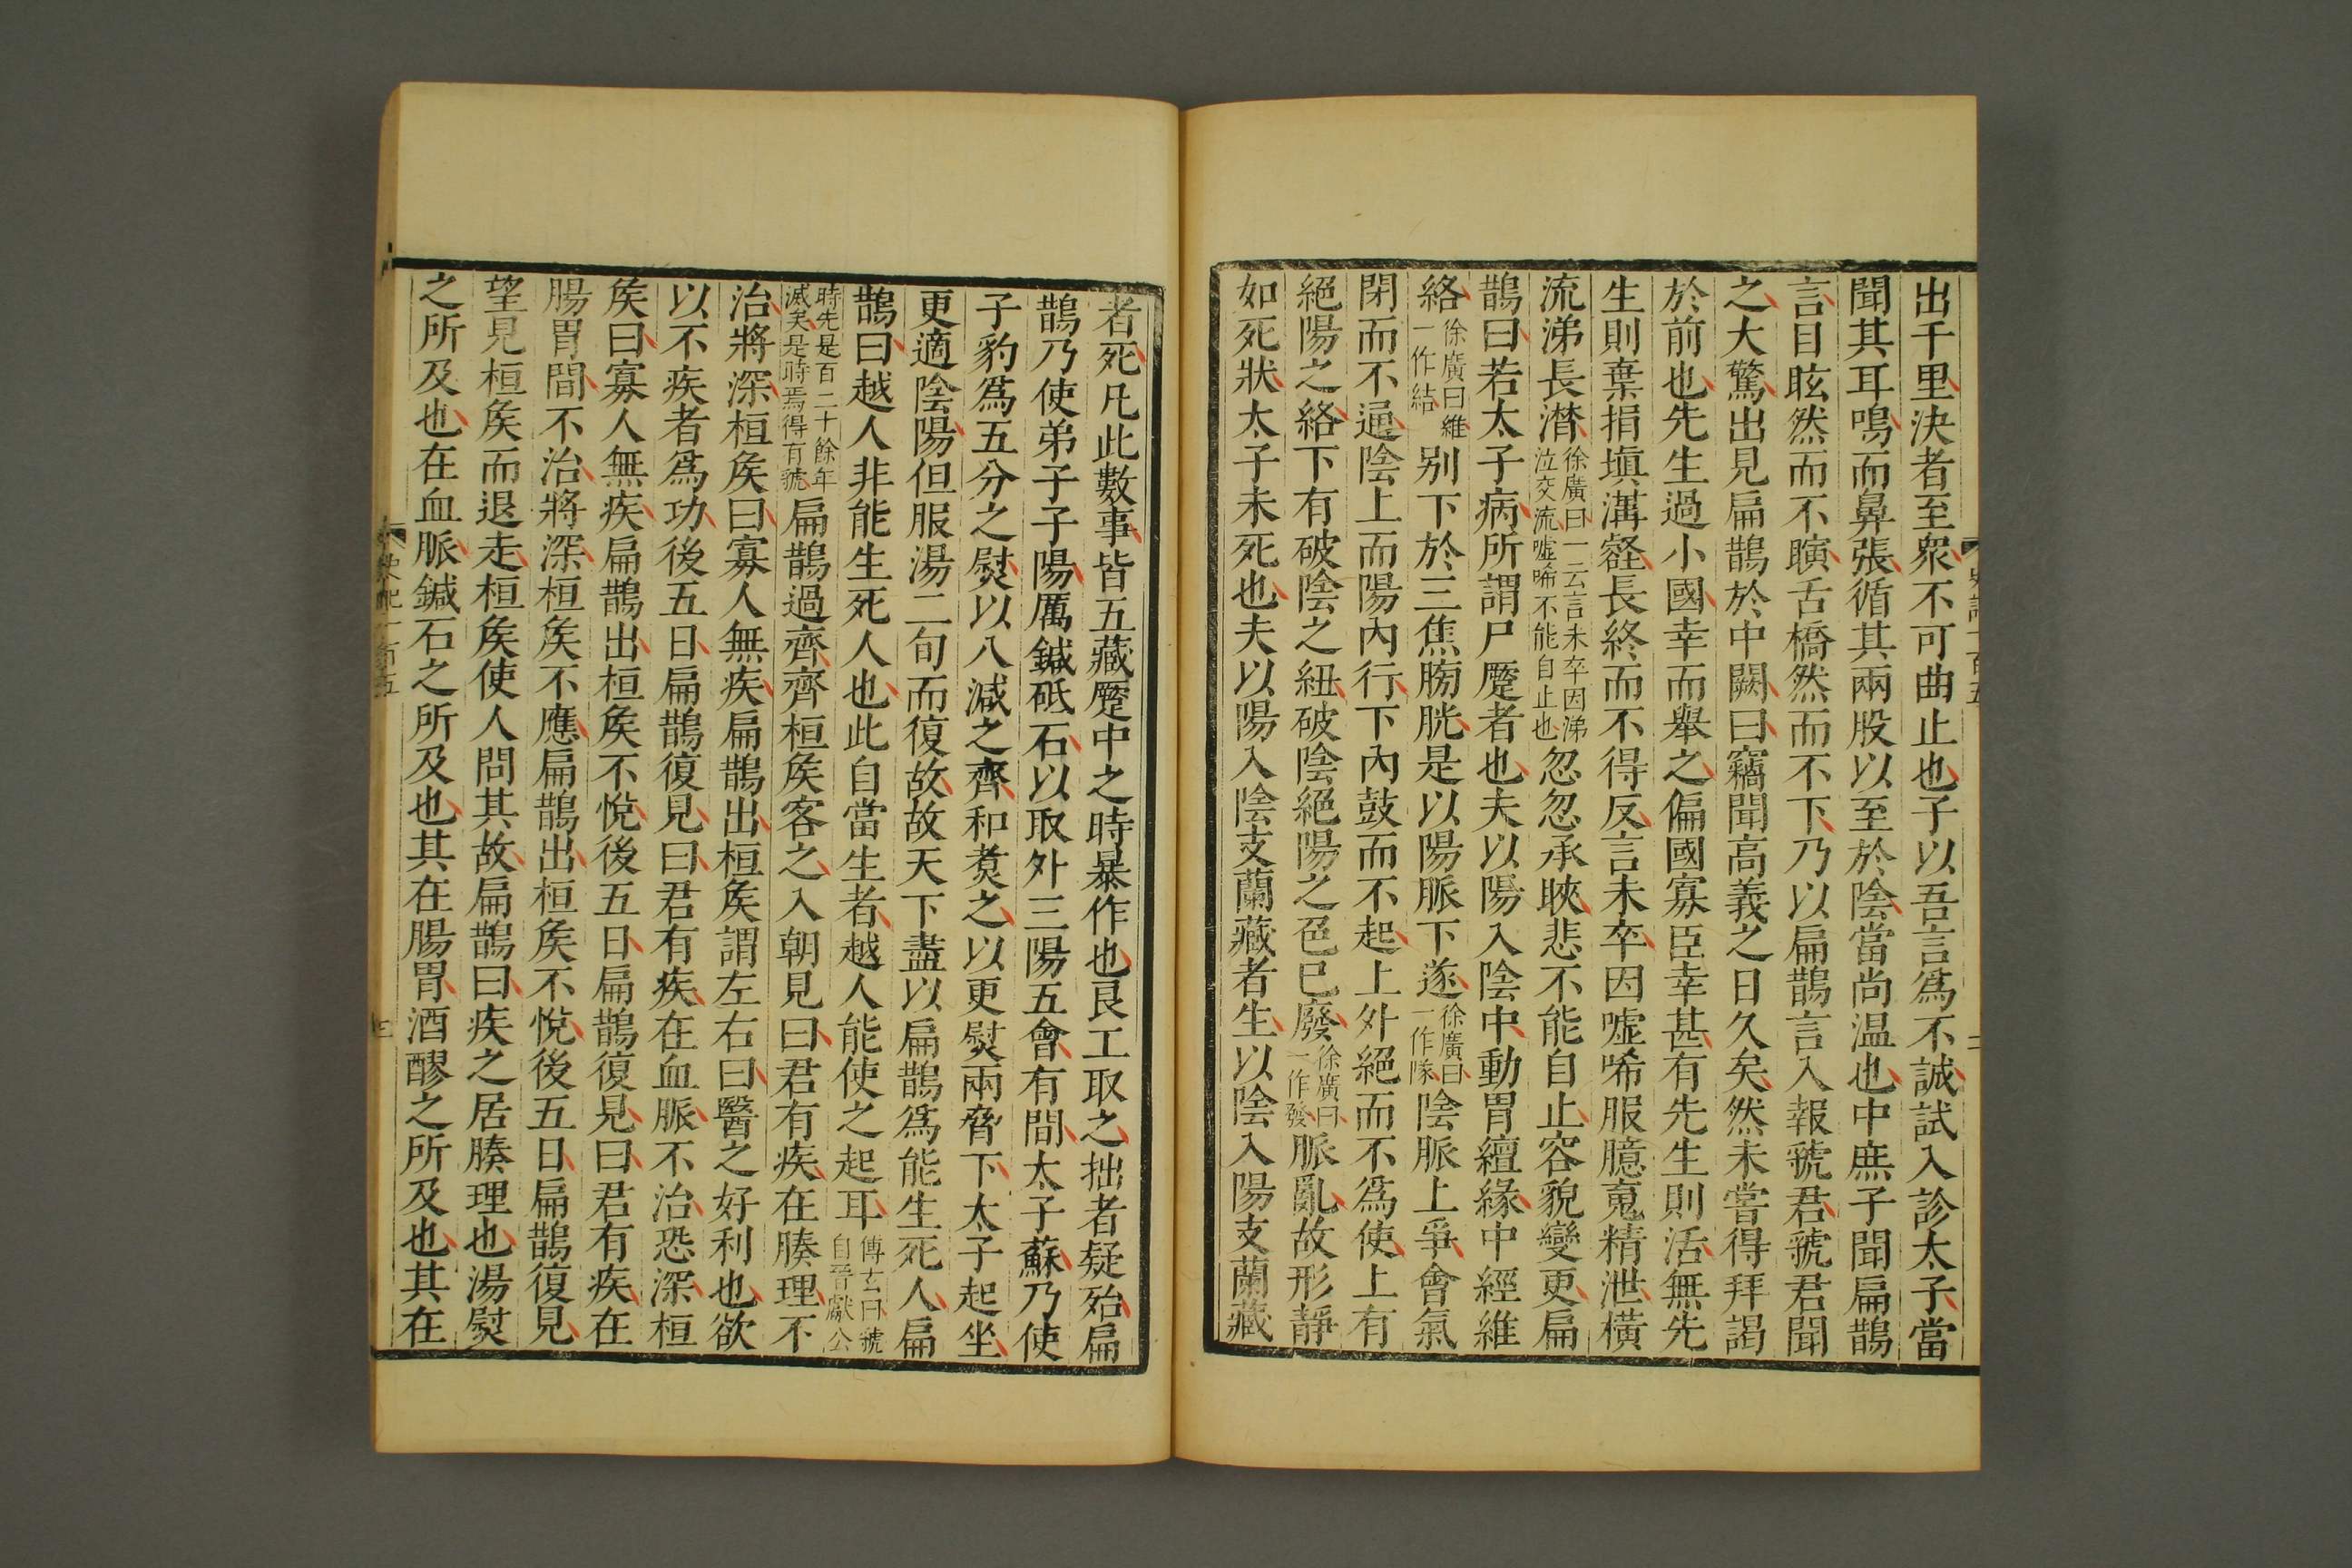 出千里決者至衆不可曲止也子以吾言爲不誠試入診太子當
聞其耳鳴而鼻張循其兩股以至於陰當尚温也中庶子聞扁鵲
言目眩然而不瞚舌撟然而不下乃以扁鵲言入報虢君虢君聞
之大驚出見扁鵲於中闕曰竊聞高義之日久矣然未嘗得拜謁
於前也先生過小國幸而舉之偏國寡臣幸甚有先生則活無先
生則棄捐塡溝壑長終而不得反言未卒因噓唏服臆䰟精泄橫
流涕長潸徐廣曰一云言未卒因涕泣交流噓唏不能自止也忽忽承𥇒悲不能自止容貌變更扁
鵲曰若太子病所謂尸蹷者也夫以陽入陰中動胃繵緣中經維
絡徐廣曰維一作結别下於三焦膀胱是以陽脈下遂徐廣曰一作隊陰脈上爭會氣
閉而不通陰上而陽內行下內鼓而不起上外絕而不爲使上有
絕陽之絡下有破陰之紐破陰絕陽之色已廢徐廣曰一作發脈亂故形靜
如死狀太子未死也夫以陽入陰支蘭藏者生以陰入陽支蘭藏
者死凡此數事皆五藏蹷中之時暴作也良工取之拙者疑殆扁
鵲乃使弟子子陽厲鍼砥石以取外三陽五會有間太子蘇乃使
子豹爲五分之熨以八減之齊和煑之以更熨兩脅下太子起坐
更適陰陽但服湯二旬而復故故天下盡以扁鵲爲能生死人扁
鵲曰越人非能生死人也此自當生者越人能使之起耳傅玄曰虢自晉獻公
時先是百二十餘年滅矣是時焉得有虢扁鵲過齊齊桓矦客之入朝見曰君有疾在腠理不
治將深桓矦曰寡人無疾扁鵲出桓矦謂左右曰醫之好利也欲
以不疾者爲功後五日扁鵲復見曰君有疾在血脈不治恐深桓
矦曰寡人無疾扁鵲出桓矦不悅後五日扁鵲復見曰君有疾在
腸胃間不治將深桓矦不應扁鵲出桓矦不悅後五日扁鵲復見
望見桓矦而退走桓矦使人問其故扁鵲曰疾之居腠理也湯熨
之所及也在血脈鍼石之所及也其在腸胃酒醪之所及也其在